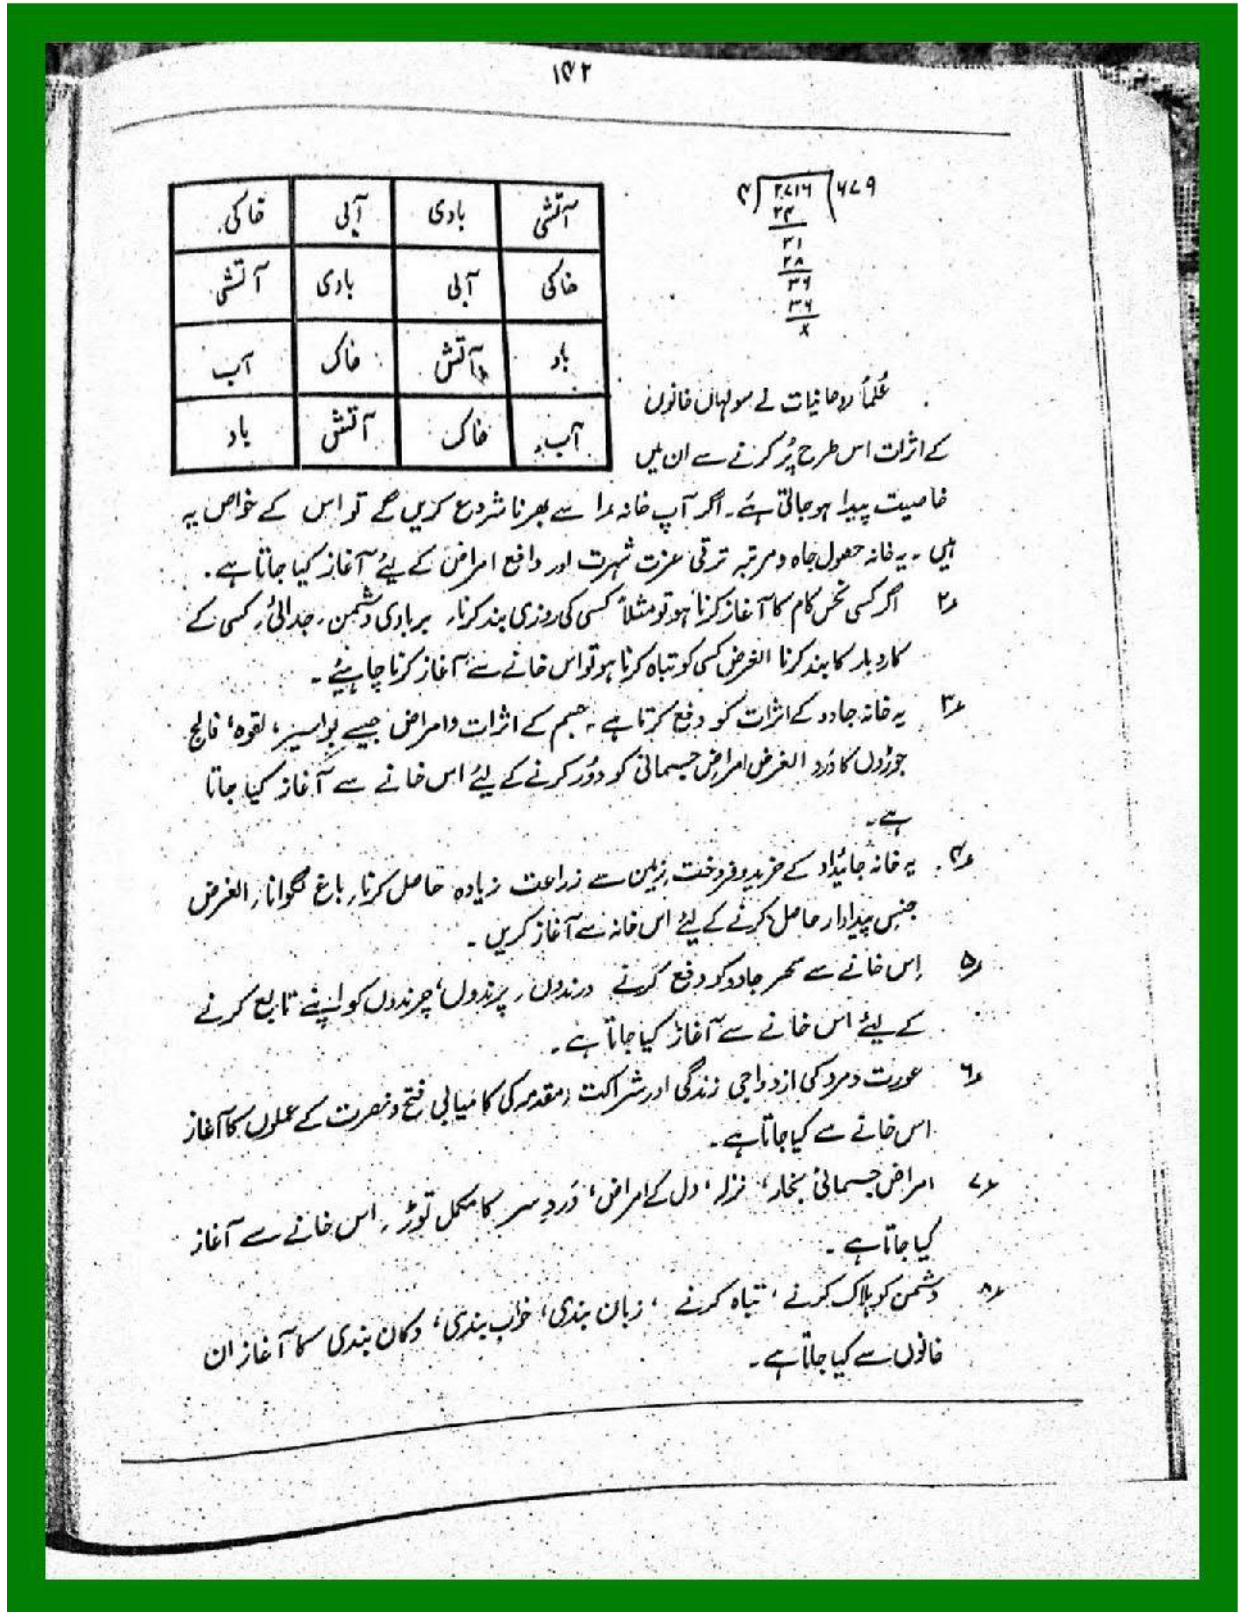 ۱۴۲
آتشی بادی آبی خاکی
خاکی آبی بادی آتشی
باد آتش خاک آب
آب خاک آتش باد
۴) ۲۷۱۶ (۶۷۹
۲۴
۳۱
۲۸
۳۶
۳۶
x
عُلمأ روحانیات نے سولہاں خانوں
کے اثرات اس طرح پُر کرنے سے ان میں
خاصیت پیدا ہوجاتی ہے۔ اگر آپ خانہ ۱ سے بھرنا شروع کریں گے تو اس کے خواص یہ
ہیں ۔ یہ خانہ حصول جاہ و مرتبہ ترقی عزت شہرت اور دافع امراض کے لیئے آغاز کیا جاتا ہے ۔
۲ اگر کسی نحس کام کا آغاز کرنا ہو تو مثلاً کسی کی روزی بند کرنا، بربادی دشمن، جدائی، کسی کے
کاروبار کا بند کرنا الغرض کسی کو تباہ کرنا ہو تو اس خانے سے آغاز کرنا چاہیئے ۔
۳ یہ خانہ جادو کے اثرات کو دفع کرتا ہے ۔ جسم کے اثرات و امراض جیسے بواسیر، لقوہ، فالج
جوڑوں کا درد الغرض امراضِ جسمانی کو دُور کرنے کے لیئے اس خانے سے آغاز کیا جاتا
ہے۔
۴ یہ خانہ جائیداد کے خرید و فروخت، زمین سے زراعت زیادہ حاصل کرنا، باغ لگوانا، الغرض
جنسِ پیداوار حاصل کرنے کے لیئے اس خانہ سے آغاز کریں ۔
۵ اِس خانے سے سحر جادو کو دفع کرنے درندوں، پرندوں، چرندوں کو اپنے تابع کرنے
کے لیئے اس خانے سے آغاز کیا جاتا ہے ۔
۶ عورت و مرد کی ازدواجی زندگی اور شراکت، مقدمہ کی کامیابی فتح و نصرت کے عملوں کا آغاز
اس خانے سے کیا جاتا ہے ۔
۷ امراض جسمانی بخار، نزلہ، دل کے امراض، دردِ سر کا مکمل توڑ، اس خانے سے آغاز
کیا جاتا ہے ۔
۸ دشمن کو ہلاک کرنے، تباہ کرنے، زبان بندی، خواب بندی، دکان بندی کا آغاز ان
خانوں سے کیا جاتا ہے ۔